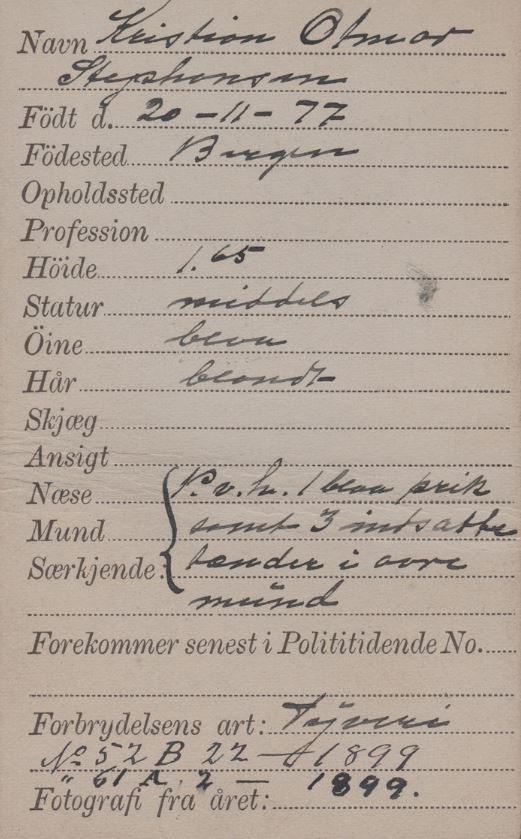 Navn Kristian Otmar
Stephansen
Födt d. 20-11-77
Födested Bergen
Opholdssted
Profession
Höide 1.65
Statur middels
Öine blaa
Hår blondt
Skjæg
Ansigt
Næse P.v.h. 1 blaa prik
Mund samt 3 indsatte
Særkjende: tænder i øvre
mund
Forekommer senest i Polititidende No.
Forbrydelsens art: Tyveri
No 52 B 22 - 1899
" 61 A. 2 — 1899.
Fotografi fra året: